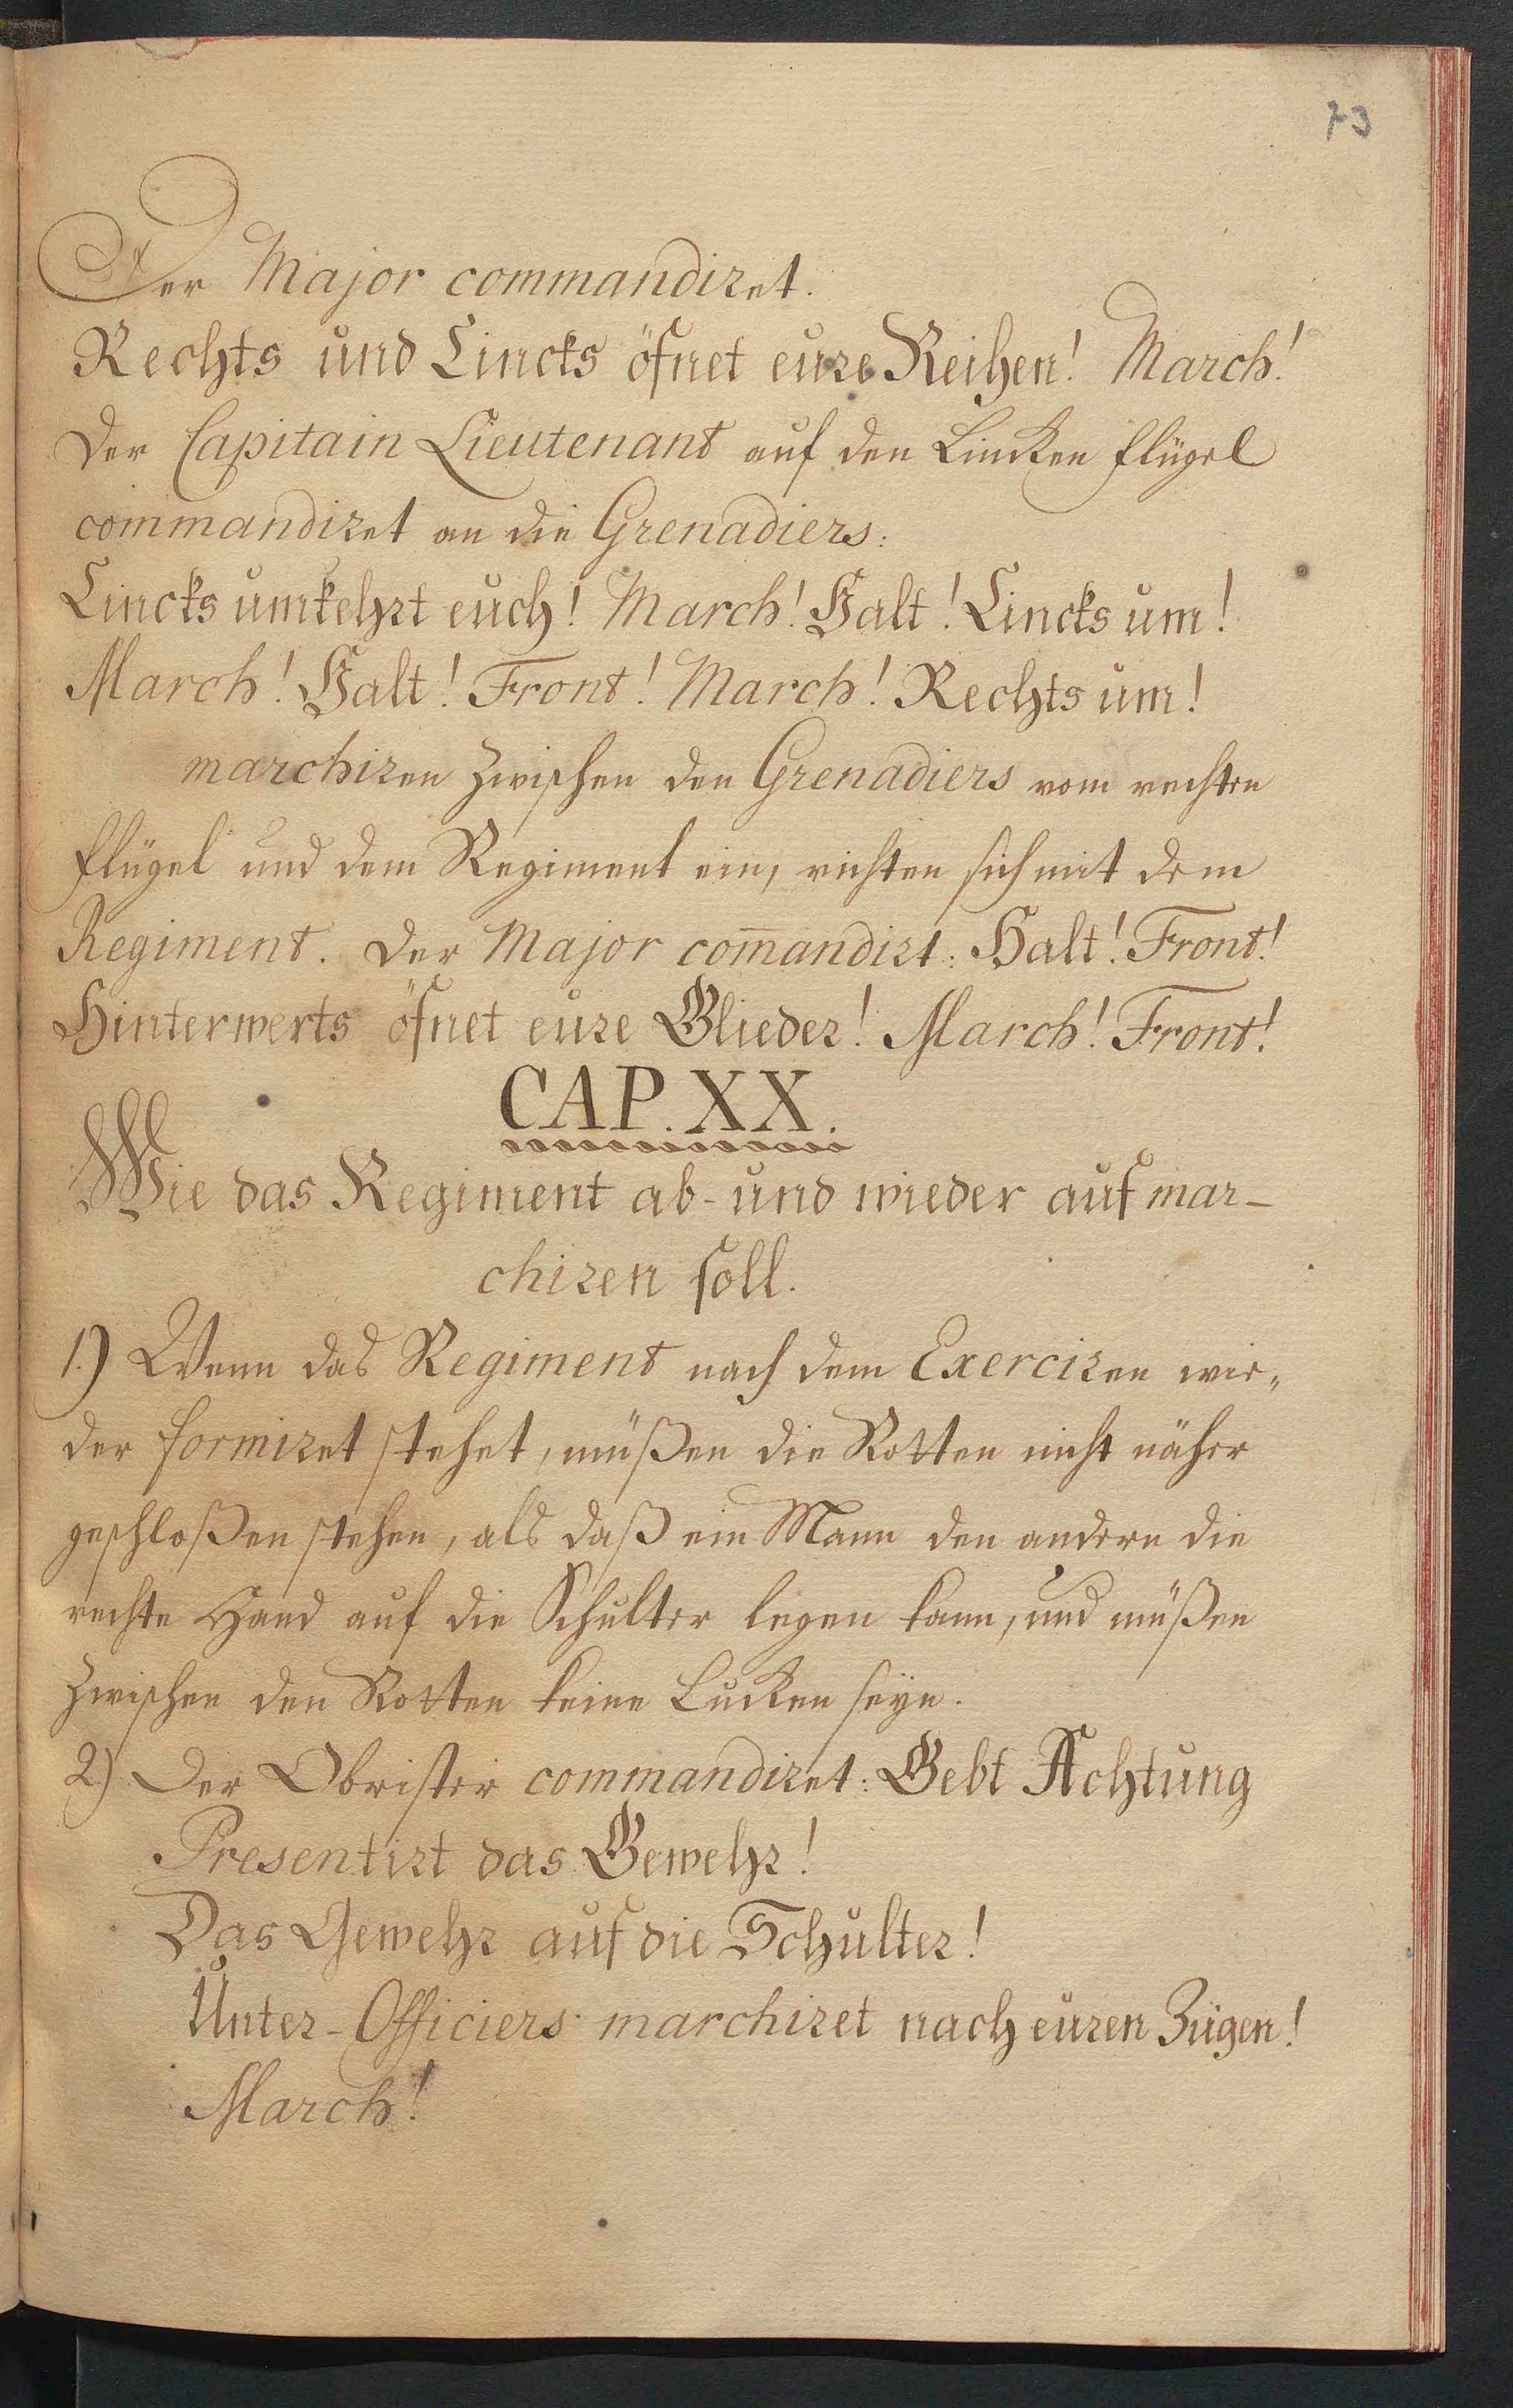 73
Der Major commandiret.
Rechts und Lincks öfnet eure Reihen! March!
Der Capitain Lieutenant auf den Lincken Flügel
commandiret an die Grenadiers:
Lincks umkehrt euch! March! Halt! Lincks um!
March! Halt! Front! March! Rechts um!
marchiren zwischen den Grenadiers vom rechten
Flügel und dem Regiment ein, richten sich mit dem
Regiment. Der Major com̅andirt: Halt! Front!
Hinterwerts öfnet eure Glieder! March! Front!
CAP. XX.
Wie das Regiment ab- und wieder auf mar-
chiren soll.
1.) Wenn das Regiment nach dem Exerciren wie-
der formiret stehet, müßen die Rotten nicht näher
geschloßen stehen, als daß ein Mann den andern die
rechte Hand auf die Schulter legen kann, und müßen
zwischen den Rotten keine Lucken seyn.
2.) Der Obrister commandiret: Gebt Achtung
Presentirt das Gewehr!
Das Gewehr auf die Schulter!
Unter-Officiers marchiret nach euren Zügen!
March!